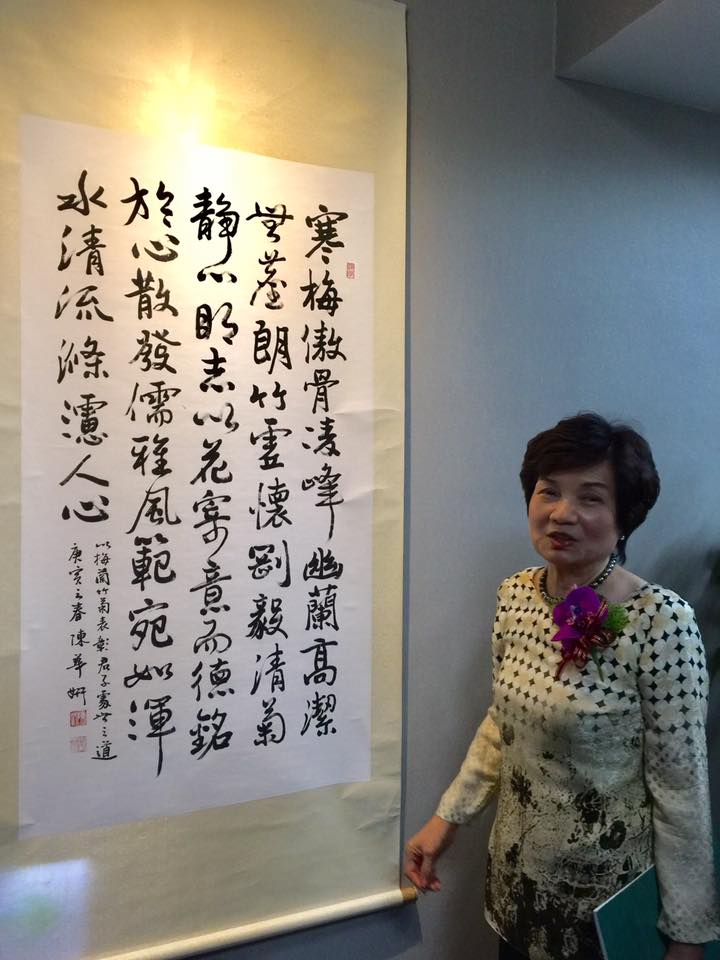 寒梅傲骨凌峰幽蘭高潔
無塵朗竹虛懷劉毅清菊
靜心明志以花寄意而德銘
於心散發儒雅風範宛如渾
水清流滌濾人心
以梅蘭竹菊表彰君子處世之道
庚寅之春陳華妍